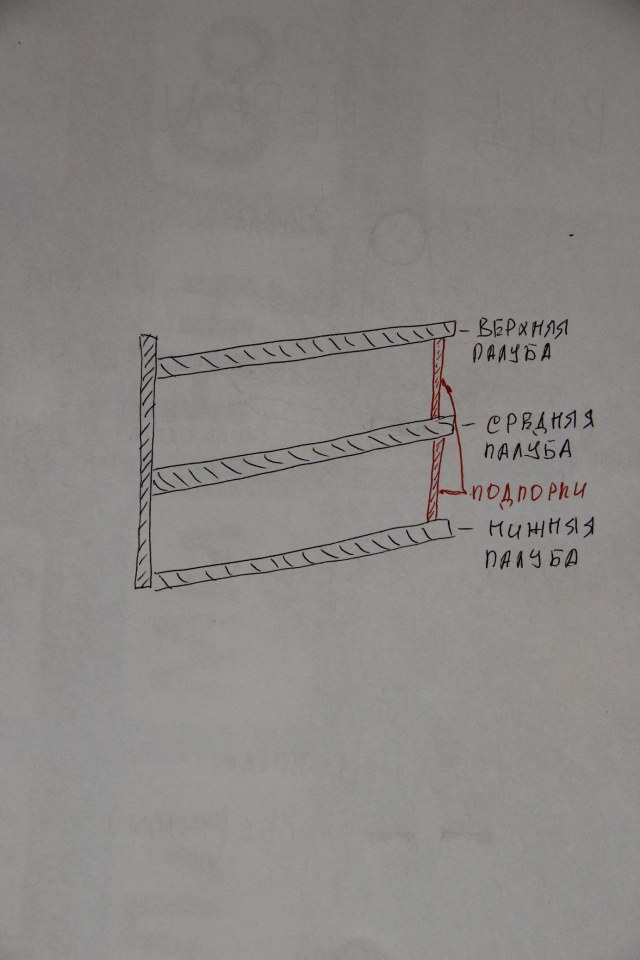 ВЕРХНЯЯ
ПАЛУБА
СРВДНЯЯ
ПАЛУБА
ПОДПОРКИ
НИЖНЯЯ
ПАЛУБА